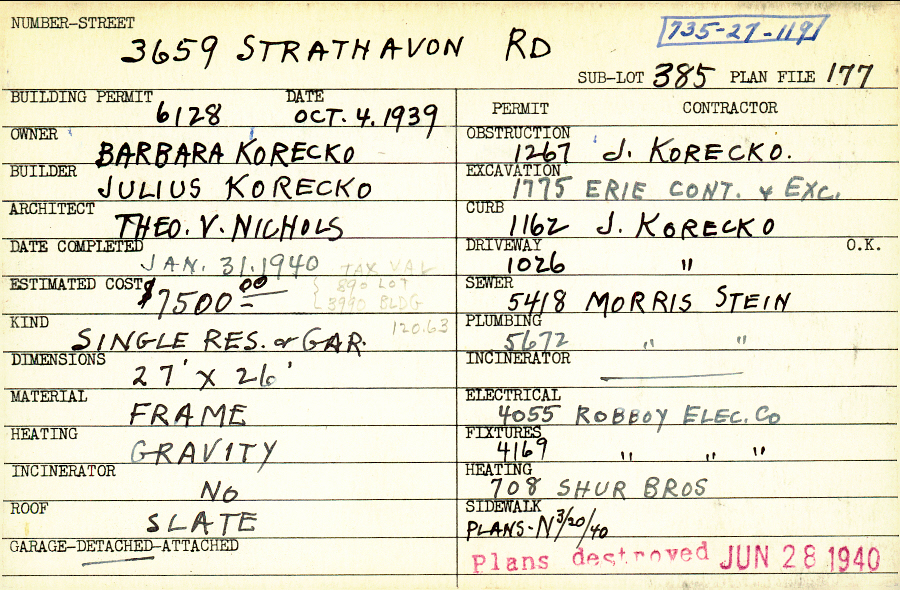 NUMBER-STREET
3659 STRATHAVON RD
735-27-119
SUB-LOT 385 PLAN FILE 177
BUILDING PERMIT DATE
6128 OCT. 4. 1939
OWNER
BARBARA KORECKO
BUILDER
JULIUS KORECKO
ARCHITECT
THEO. V. NICHOLS
DATE COMPLETED
JAN. 31. 1940
TAX VAL
890 LOT
3990 BLDG
120.63
ESTIMATED COST
$7500 00
KIND
SINGLE RES. or GAR.
DIMENSIONS
27' X 26'
MATERIAL
FRAME
HEATING
GRAVITY
INCINERATOR
NO
ROOF
SLATE
GARAGE-DETACHED-ATTACHED
PERMIT CONTRACTOR
OBSTRUCTION
1267 J. KORECKO.
EXCAVATION
1775 ERIE CONT. & EXC.
CURB
1162 J. KORECKO
DRIVEWAY O.K.
1026 "
SEWER
5418 MORRIS STEIN
PLUMBING
5672 " "
INCINERATOR
ELECTRICAL
4055 ROBBOY ELEC. CO
FIXTURES
4169 " " "
HEATING
708 SHUR BROS
SIDEWALK
PLANS-N 3/20/40
Plans destroyed JUN 28 1940